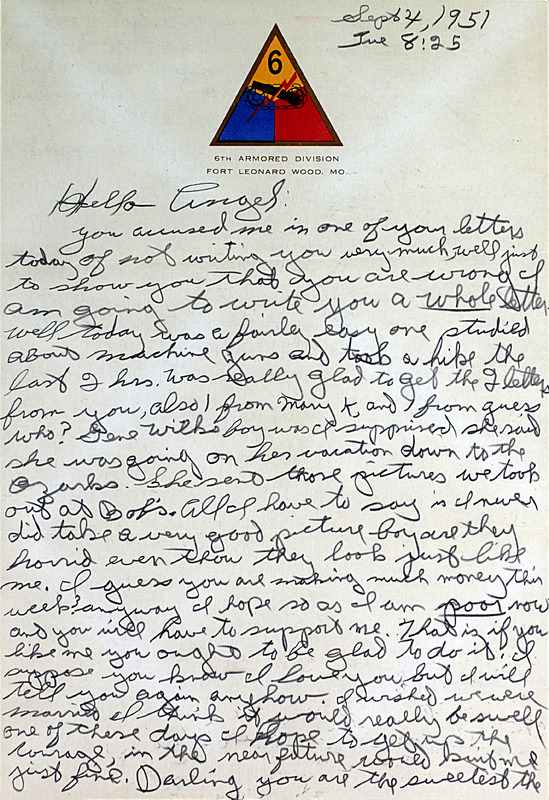 Sept 4, 1951
Tue 8:25
6
6TH ARMORED DIVISION
FORT LEONARD WOOD, MO.
Hello Angel:
you accused me in one of your letters
today of not writing you very much, well just
to show you that you are wrong I
am going to write you a whole letter
well today was a fairly easy one studied
about machine guns and took a hike the
last 2 hrs. was really glad to get the 2 letters
from you, also 1 from Mary K and 1 from guess
who? Gene boy was I supprised she said
she was going on her vacation down to the
Ozarks. She sent those pictures we took
out at Bob's. All I have to say is I never
did take a very good picture boy are they
horrid even thow they look just like
me. I guess you are making much money this
week? anyway I hope so as I am poor now
and you will have to support me. That is if you
like me you ought to be glad to do it. I
suppose you know I love you but I will
tell you again anyhow. I wished we were
married I think it would really be swell
one of these days I hope to get up the
courage, in the near future would suit me
just fine. Darling you are the sweetest the